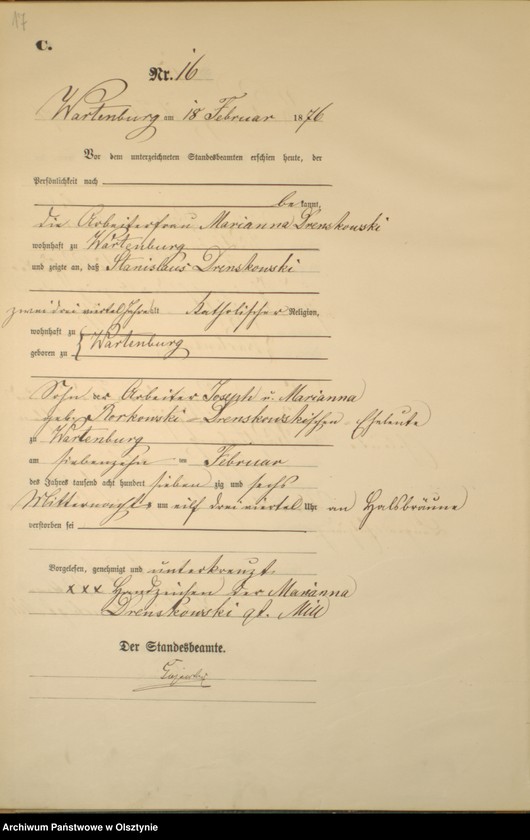 17
C.
Nr. 16
Wartenburg am 18 Februar 1876
Vor dem unterzeichneten Standesbeamten erschien heute, der
Persönlichkeit nach
be kannt,
die Arbeiterfrau Marianna Drenskowski
wohnhaft zu Wartenburg
und zeigte an, daß Stanislaus Drenskowski
zwei drei viertel Jahre alt katholischer Religion,
wohnhaft zu
geboren zu Wartenburg
Sohn der Arbeiter Joseph u. Marianna
geb. Norkowski - Drenskowskischen Eheleute
zu Wartenburg
am siebenzehn ten Februar
des Jahres tausend acht hundert sieben zig und sechs
Mitternachts um eilf drei viertel Uhr an Halsbräune
verstorben sei
Vorgelesen, genehmigt und unterkreuzt.
xxx Handzeichen der Marianna
Drenskowski
Der Standesbeamte.
Archiwum Państwowe w Olsztynie